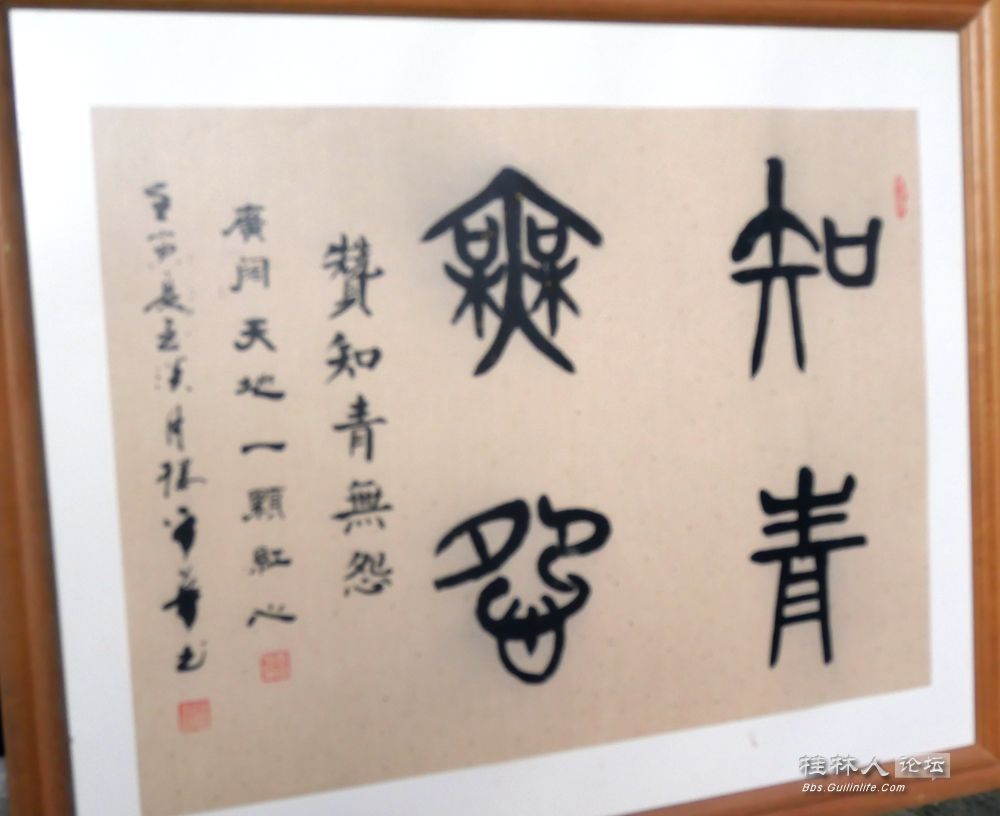 知青
無怨
贊知青無怨
廣闊天地一顆紅心
桂林人论坛
Bbs.Guilinlife.Com